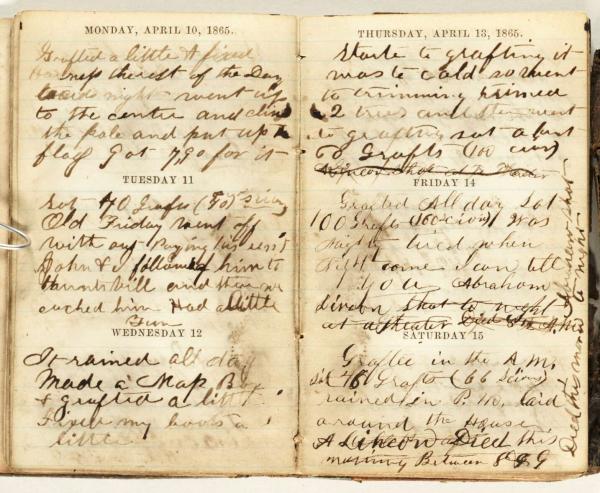 MONDAY, APRIL 10, 1865.
Grafted a little & fixed
Harness the rest of the Day
night went up
to the centre and clim
the pole and put up a
flag Got 7,90 for it
TUESDAY 11
Sot 40 Grafts (50 Scions
Old Friday went off
with out Paying his rent
John & I followed him to
Huntsvill and then we
cached him Had a little
Fun
WEDNESDAY 12
It rained all day
Made a Map
& grafted a little
Fixed my boots a
little
THURSDAY, APRIL 13, 1865.
Starte to grafting it
was to cold so went
to trimming trimed
2 trees and then went
to grafting sot about
68 Grafts (100 cions)
FRIDAY 14
Grafted All day Sot
100 Grafts (160 cions) Was
tired when
Night come I can tell
You Abraham
Lincon shot to night
at a theater Died 8th A.M.
SATURDAY 15
Graftec in the A.M.
Sot 46 Grafts (66 Scions)
rained in P.M. laid
around the House
A Lincon Died this
morning Between 8 & 9
A Lincon shot
Died this morn to night